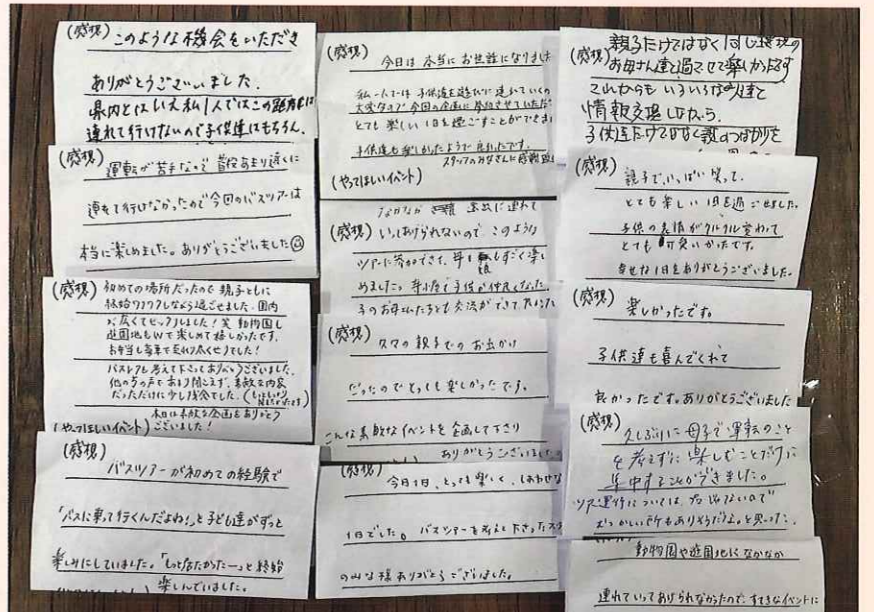 (感想) このような機会をいただき
ありがとうございました.
県内とはいえ私1人ではこの距離は
連れて行けないので子供達はもちろん、
(感想) 運転が苦手なので普段あまり遠くに
連れて行けなかったので今回のバスツアーは
本当に楽しめました。ありがとうございました
(感想) 初めての場所だったので親子ともに
終始ワクワクしながら過ごせました。園内
が広くてビックリしました!笑 動物園も
遊園地もWで楽しめて嬉しかったです。
お弁当も豪華で
バスレクも考えて下さってありがとうございました。
他の方の声であまり聞こえず、素敵な内容
だっただけに少し残念でした。
本日は素敵な企画をありがとう
(やってほしいイベント) ございました!
(感想)
バスツアーが初めての経験で
「バスに乗って行くんだよね!」と子ども達がずっと
楽しみにしていました。「もっとながかったー」っと終始
楽しんでいました。
(感想) 今日は本当にお世話になりました
私一人では子供達を遊びに連れていくの
大変なので今回の企画に参加させていただ
とても楽しい1日を過ごすことができま
子供達も楽しかったようで良かったです。
スタッフのみなさんに感謝
(やってほしいイベント)
なかなか 遠出に連れて
(感想) いってあげられないので、このような
ツアーに参加できて、母も すごく楽し
めました。
子のお母さんたちとも交流ができて
(感想) 久々の親子でのお出かけ
だったのでとっても楽しかったです。
こんな素敵なイベントを企画して下さり
ありがとうございました。
(感想) 今日1日、とっても楽しく、しあわせな
1日でした。バスツアーを考えて下さったスタ
の皆様ありがとうございました。
(感想) 親子だけではなく同じ環境の
お母さん達と過ごせて楽しかったです
これからもいろいろな人達と
情報交換しながら、
子供達だけでなく親のつながりを
(感想) 親子で、いっぱい笑って、
とても楽しい1日を過ごせました。
子供の表情がクルクル変わって
とても可愛いかったです。
幸せな1日をありがとうございました。
(感想) 楽しかったです。
子供達も喜んでくれて
良かったです。ありがとうございました
(感想) 久しぶりに母子で運転のこと
を考えずに楽しむことだけに
集中することができました。
ツアー運行については、
むつかしい所もありそうだな。と思った。
動物園や遊園地になかなか
連れていってあげられなかったので、すてきなイベントに